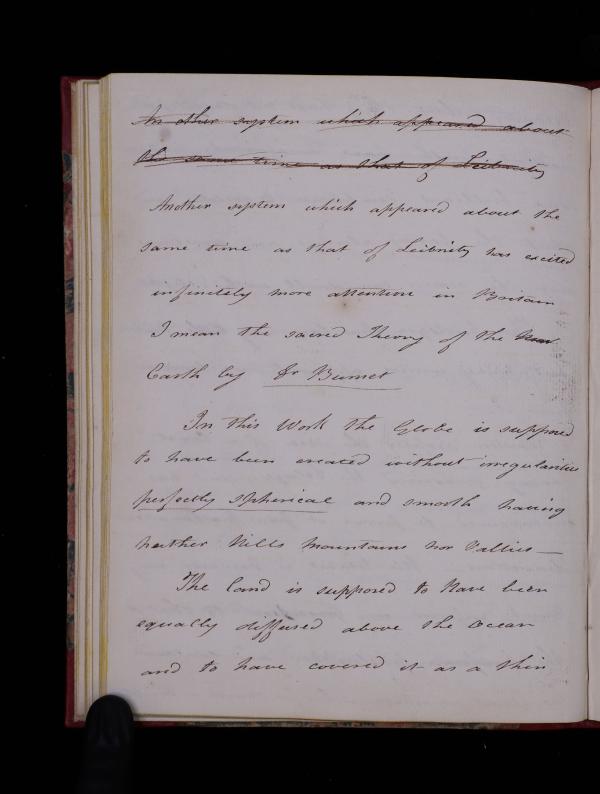 An other system which appeared about
the same time as that of Leibnitz
Another system which appeared about the
same time as that of Leibnitz has excited
infinitely more attention in Britain
I mean the sacred Theory of the
Earth by Dr Burnet
In this Work the Globe is supposed
to have been created without irregularities
perfectly spherical and smooth having
neither Hills mountains nor Vallies —
The land is supposed to have been
equally diffused above the Ocean
and to have covered it as a thin